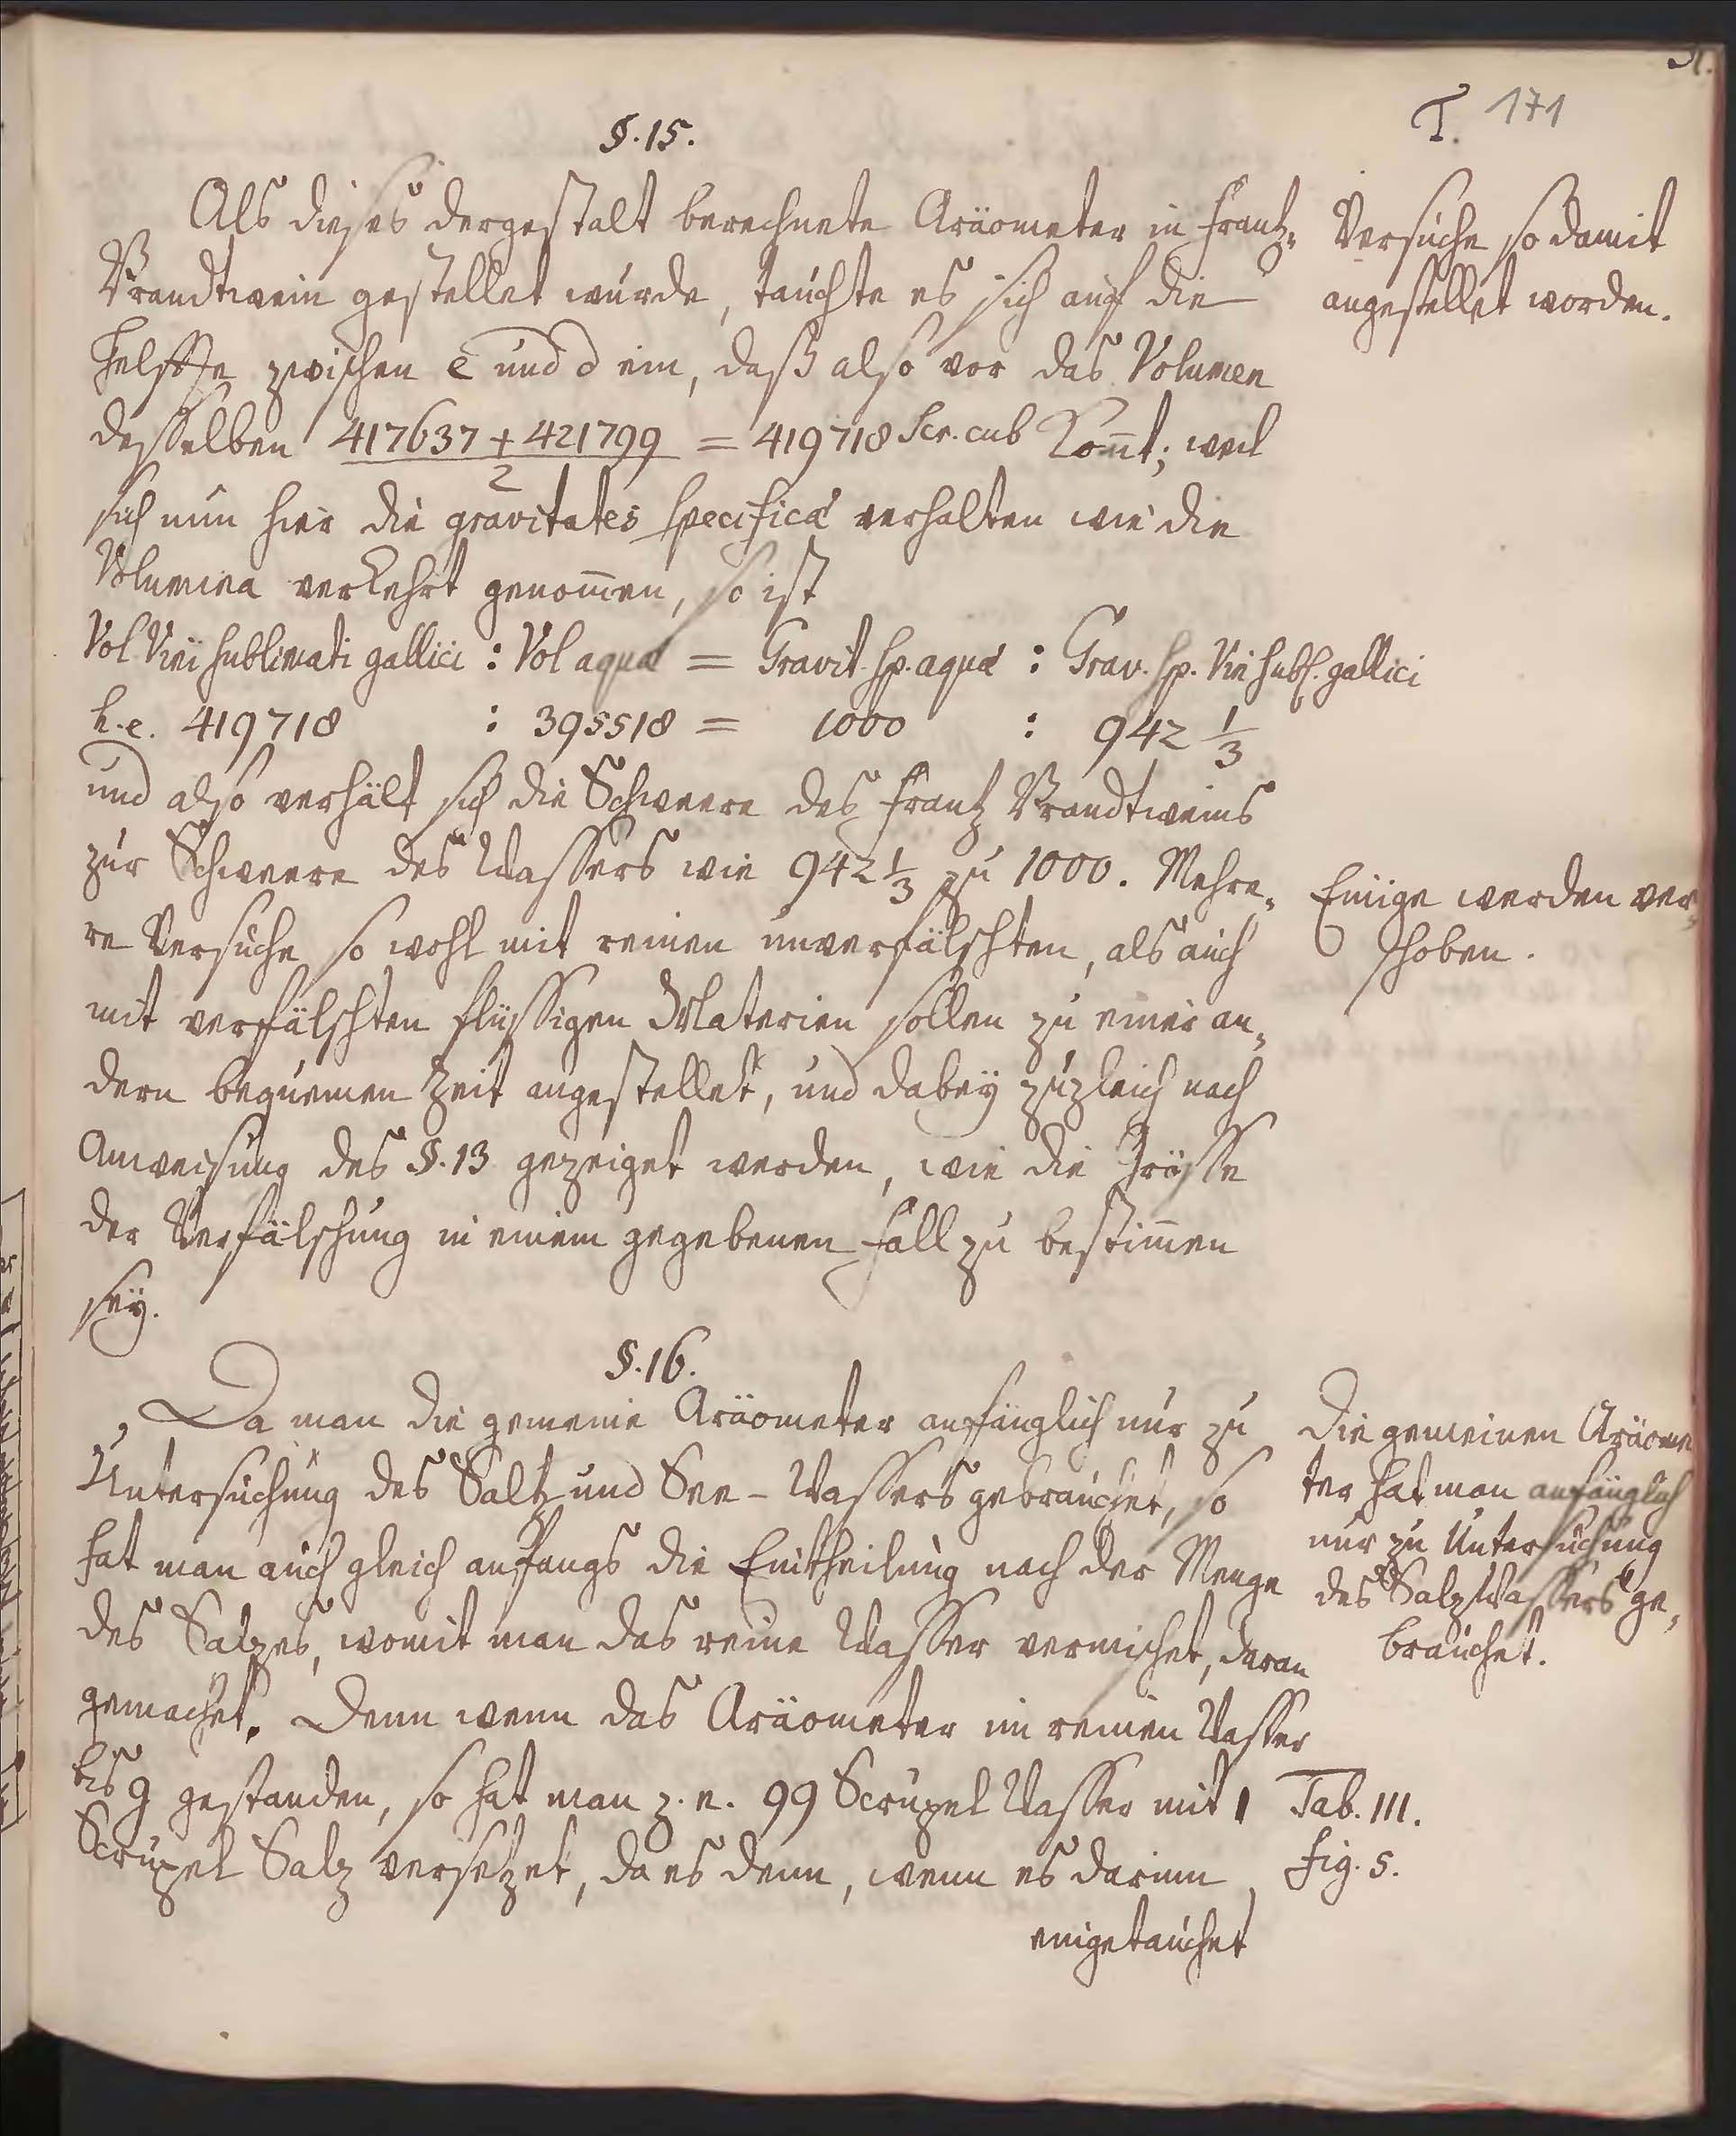 T. 171
§. 15.
Als dieses dergestalt berechnete Aräometer in Frantz-
Brandtwein gestellet wurde, tauchte es sich auf die
Helffte zwischen e und d ein, daß also vor das Volumen
desselben (417637 + 421799)/2 = 419718 Scr. cub kom̄t; weil
sich nun hier die gravitates specificæ verhalten wie die
Volumina verkehrt genom̄en, so ist
Vol Vini sublimati gallici : Vol aquæ = Gravit. sp. aquæ : Grav. sp. Vini subl. gallici
h.e. 419718 : 395518 = 1000 : 942 1/3
und also verhält sich die Schweere des Frantz Brandtweins
zur Schweere des Wassers wie 942 1/3 zu 1000. Mehre-
re Versuche so wohl mit reinen unverfälschten, als auch
mit verfälschten flüssigen Materien sollen zu einer an-
dern bequemen Zeit angestellet, und dabeÿ zugleich nach
Anweisung des §. 13 gezeiget werden, wie die Grösse
der Verfälschung in einem gegebenen Fall zu bestim̄en
seÿ.
Versuche so damit
angestellet worden.
Einige werden ver-
schoben.
§. 16.
Da man die gemeine Aräometer anfänglich nur zu
Untersuchung des Saltz und See-Wassers gebrauchet, so
hat man auch gleich anfangs die Eintheilung nach der Menge
des Salzes, womit man das reine Wasser vermischet, daran
gemachet. Denn wenn das Aräometer im reinen Wasser
bis g gestanden, so hat man z. e. 99 Scrupel Wasser mit 1
Scrupel Salz versetzet, da es denn, wenn es darinn
eingetauchet
Die gemeinen Aräome
ter hat man anfänglich
nur zu Untersuchung
des Salzwassers ge-
brauchet.
Tab. III.
Fig. 5.